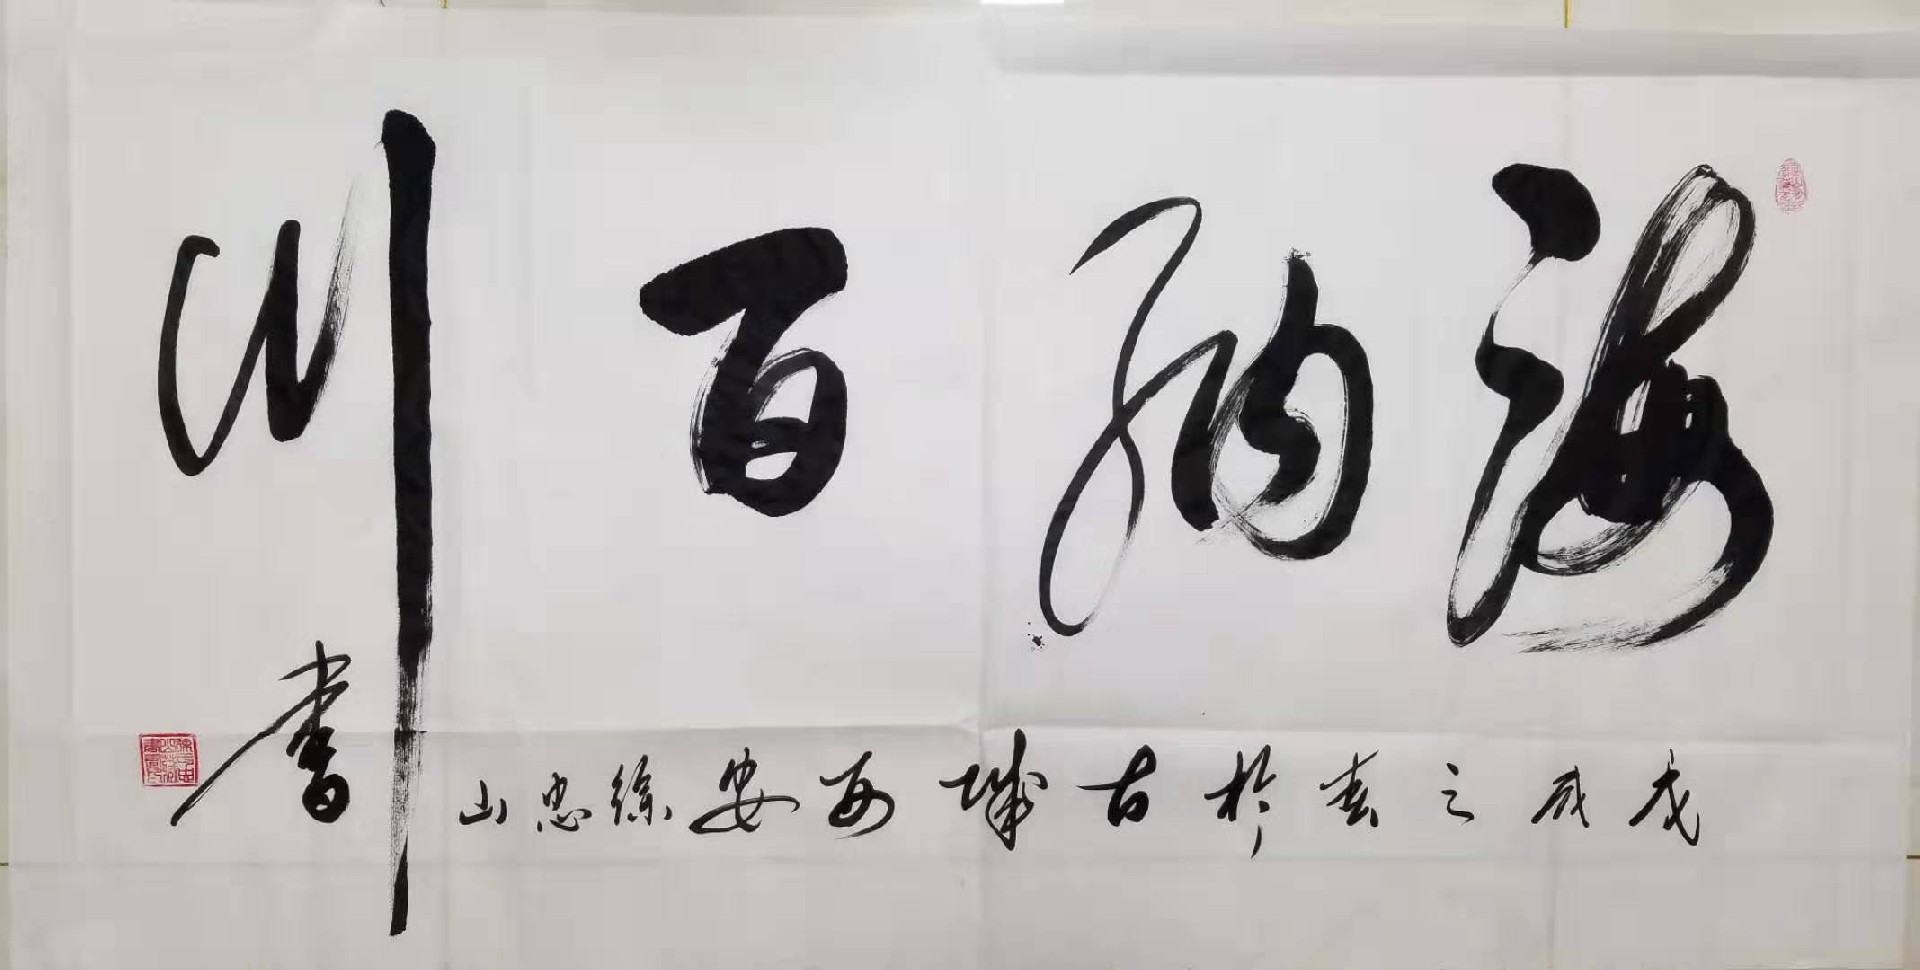 海纳百川
戊戌之春于古城西安徐忠山书